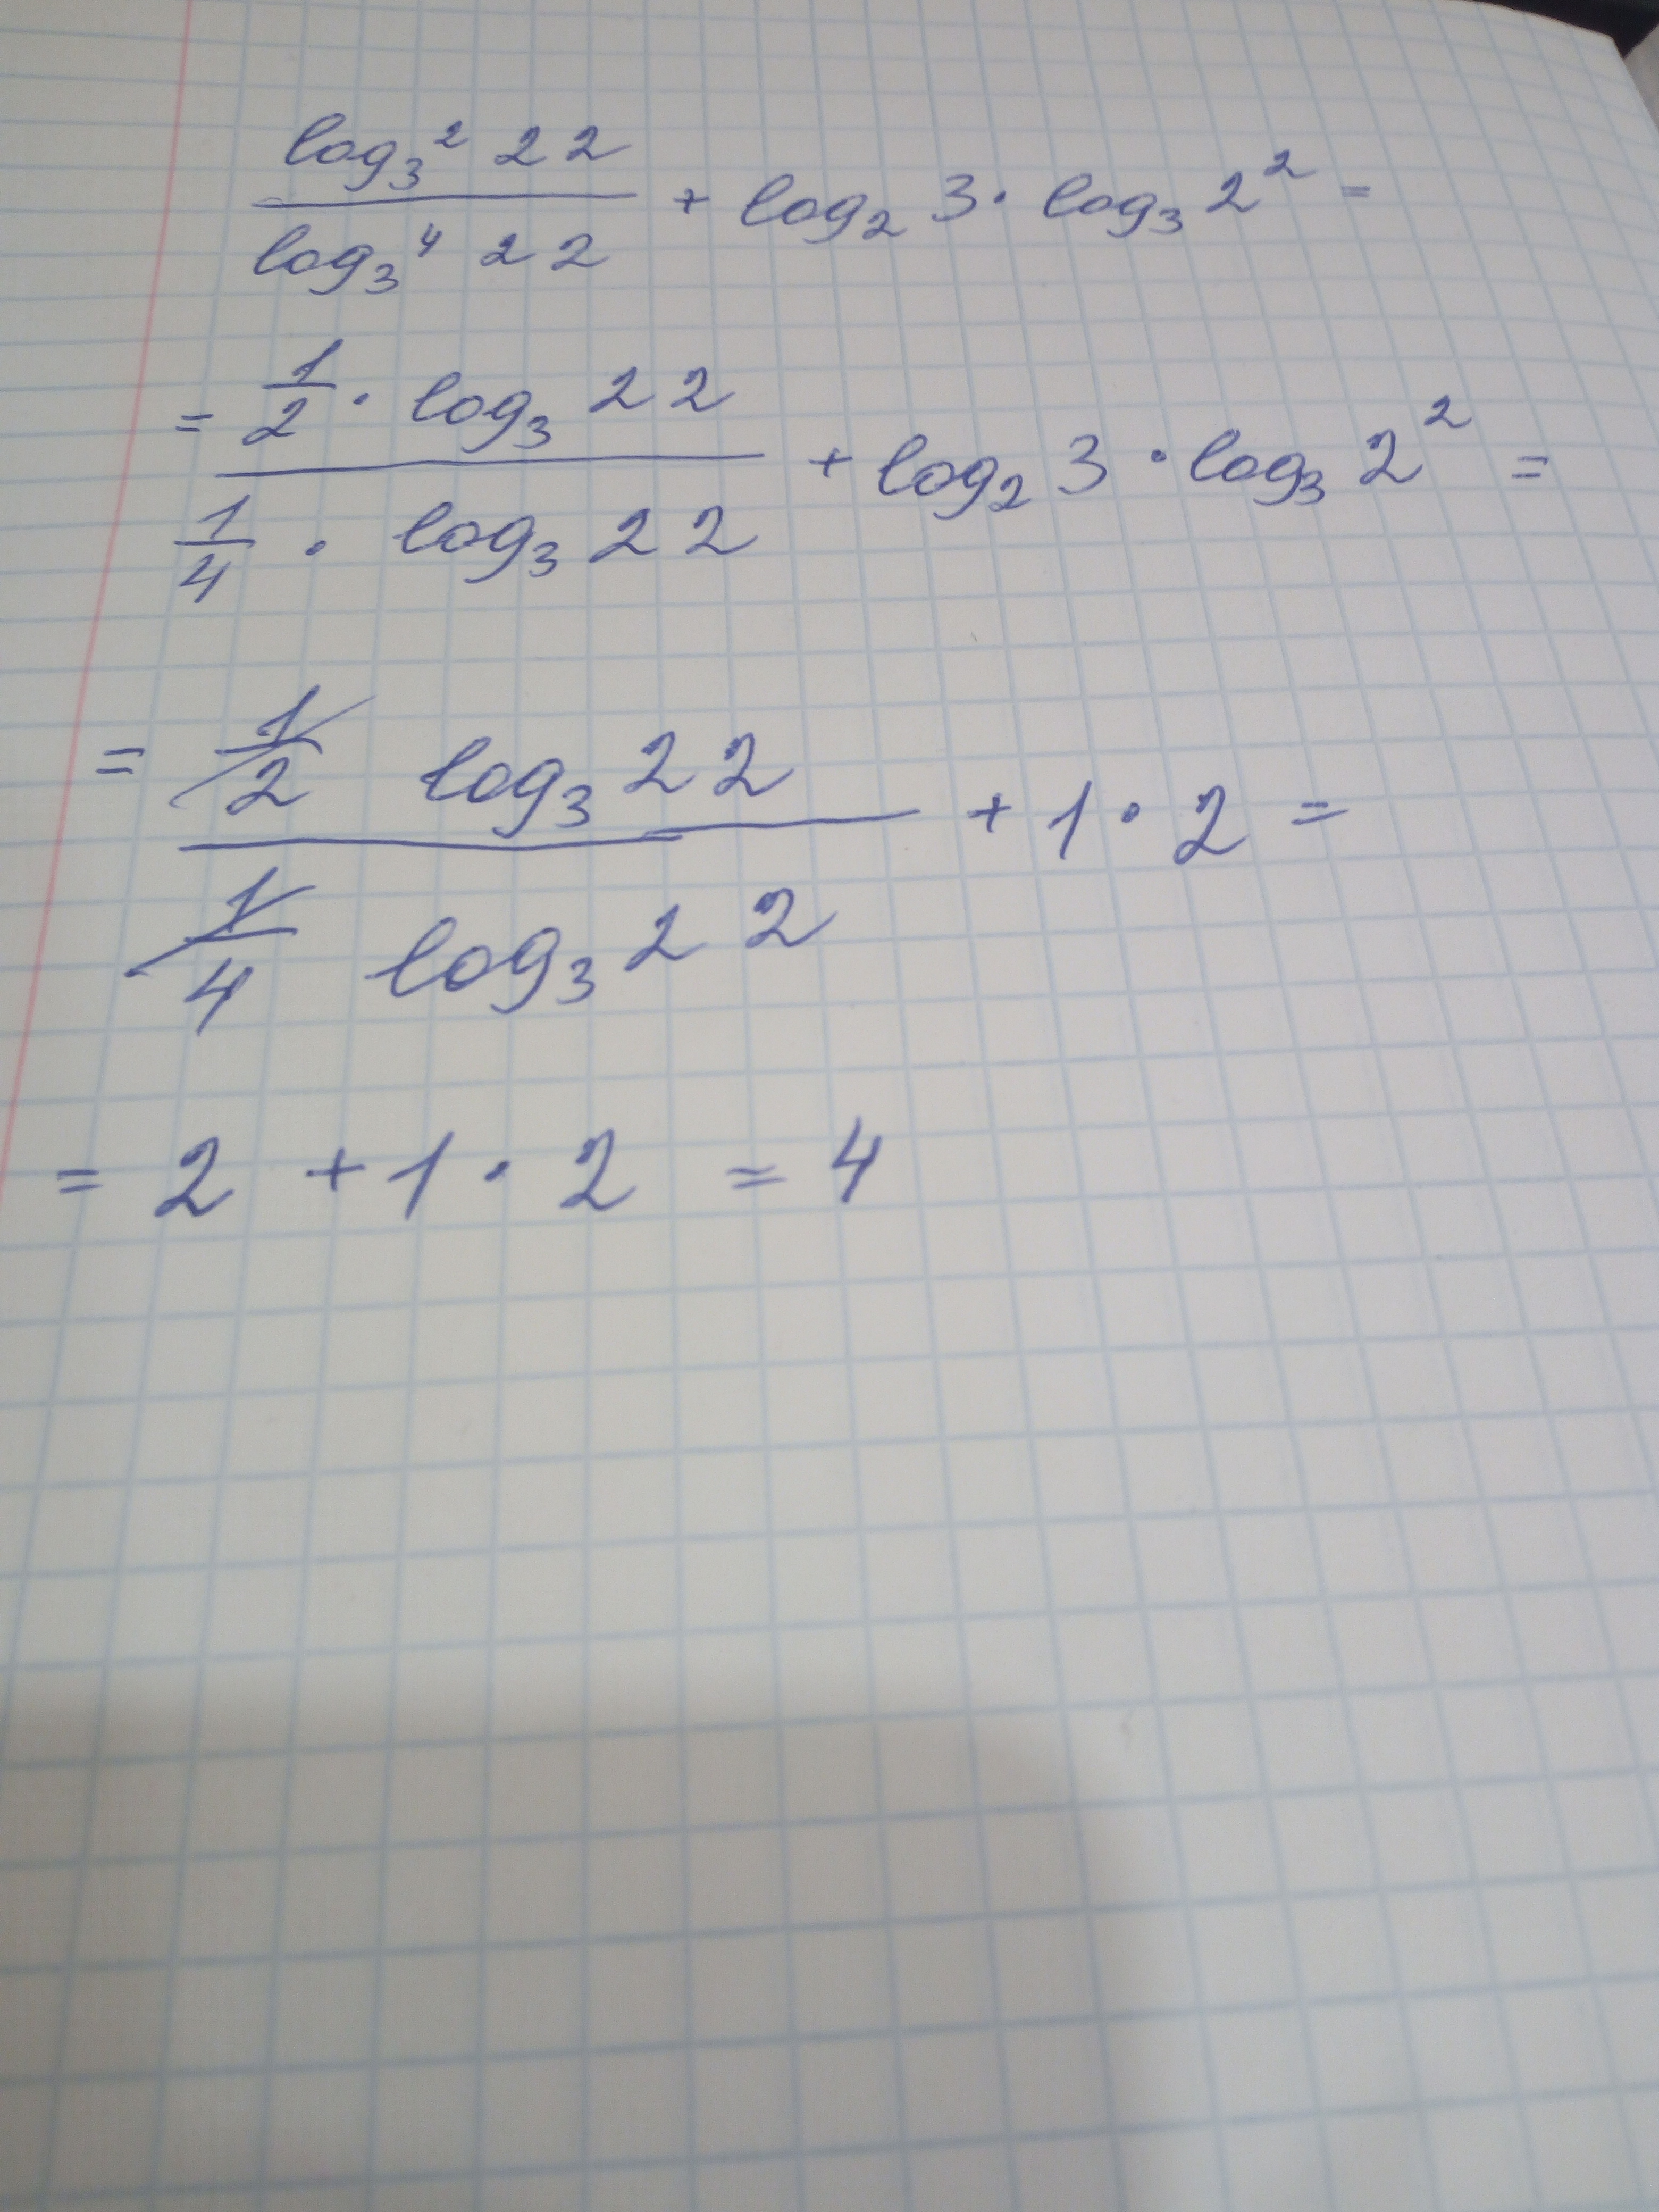 log₃² 22 / log₃⁴ 22 + log₂ 3 · log₃ 2² =
= 1/2 · log₃ 22 / 1/4 · log₃ 22 + log₂ 3 · log₃ 2² =
= 1/2 log₃ 22 / 1/4 log₃ 22 + 1 · 2 =
= 2 + 1 · 2 = 4